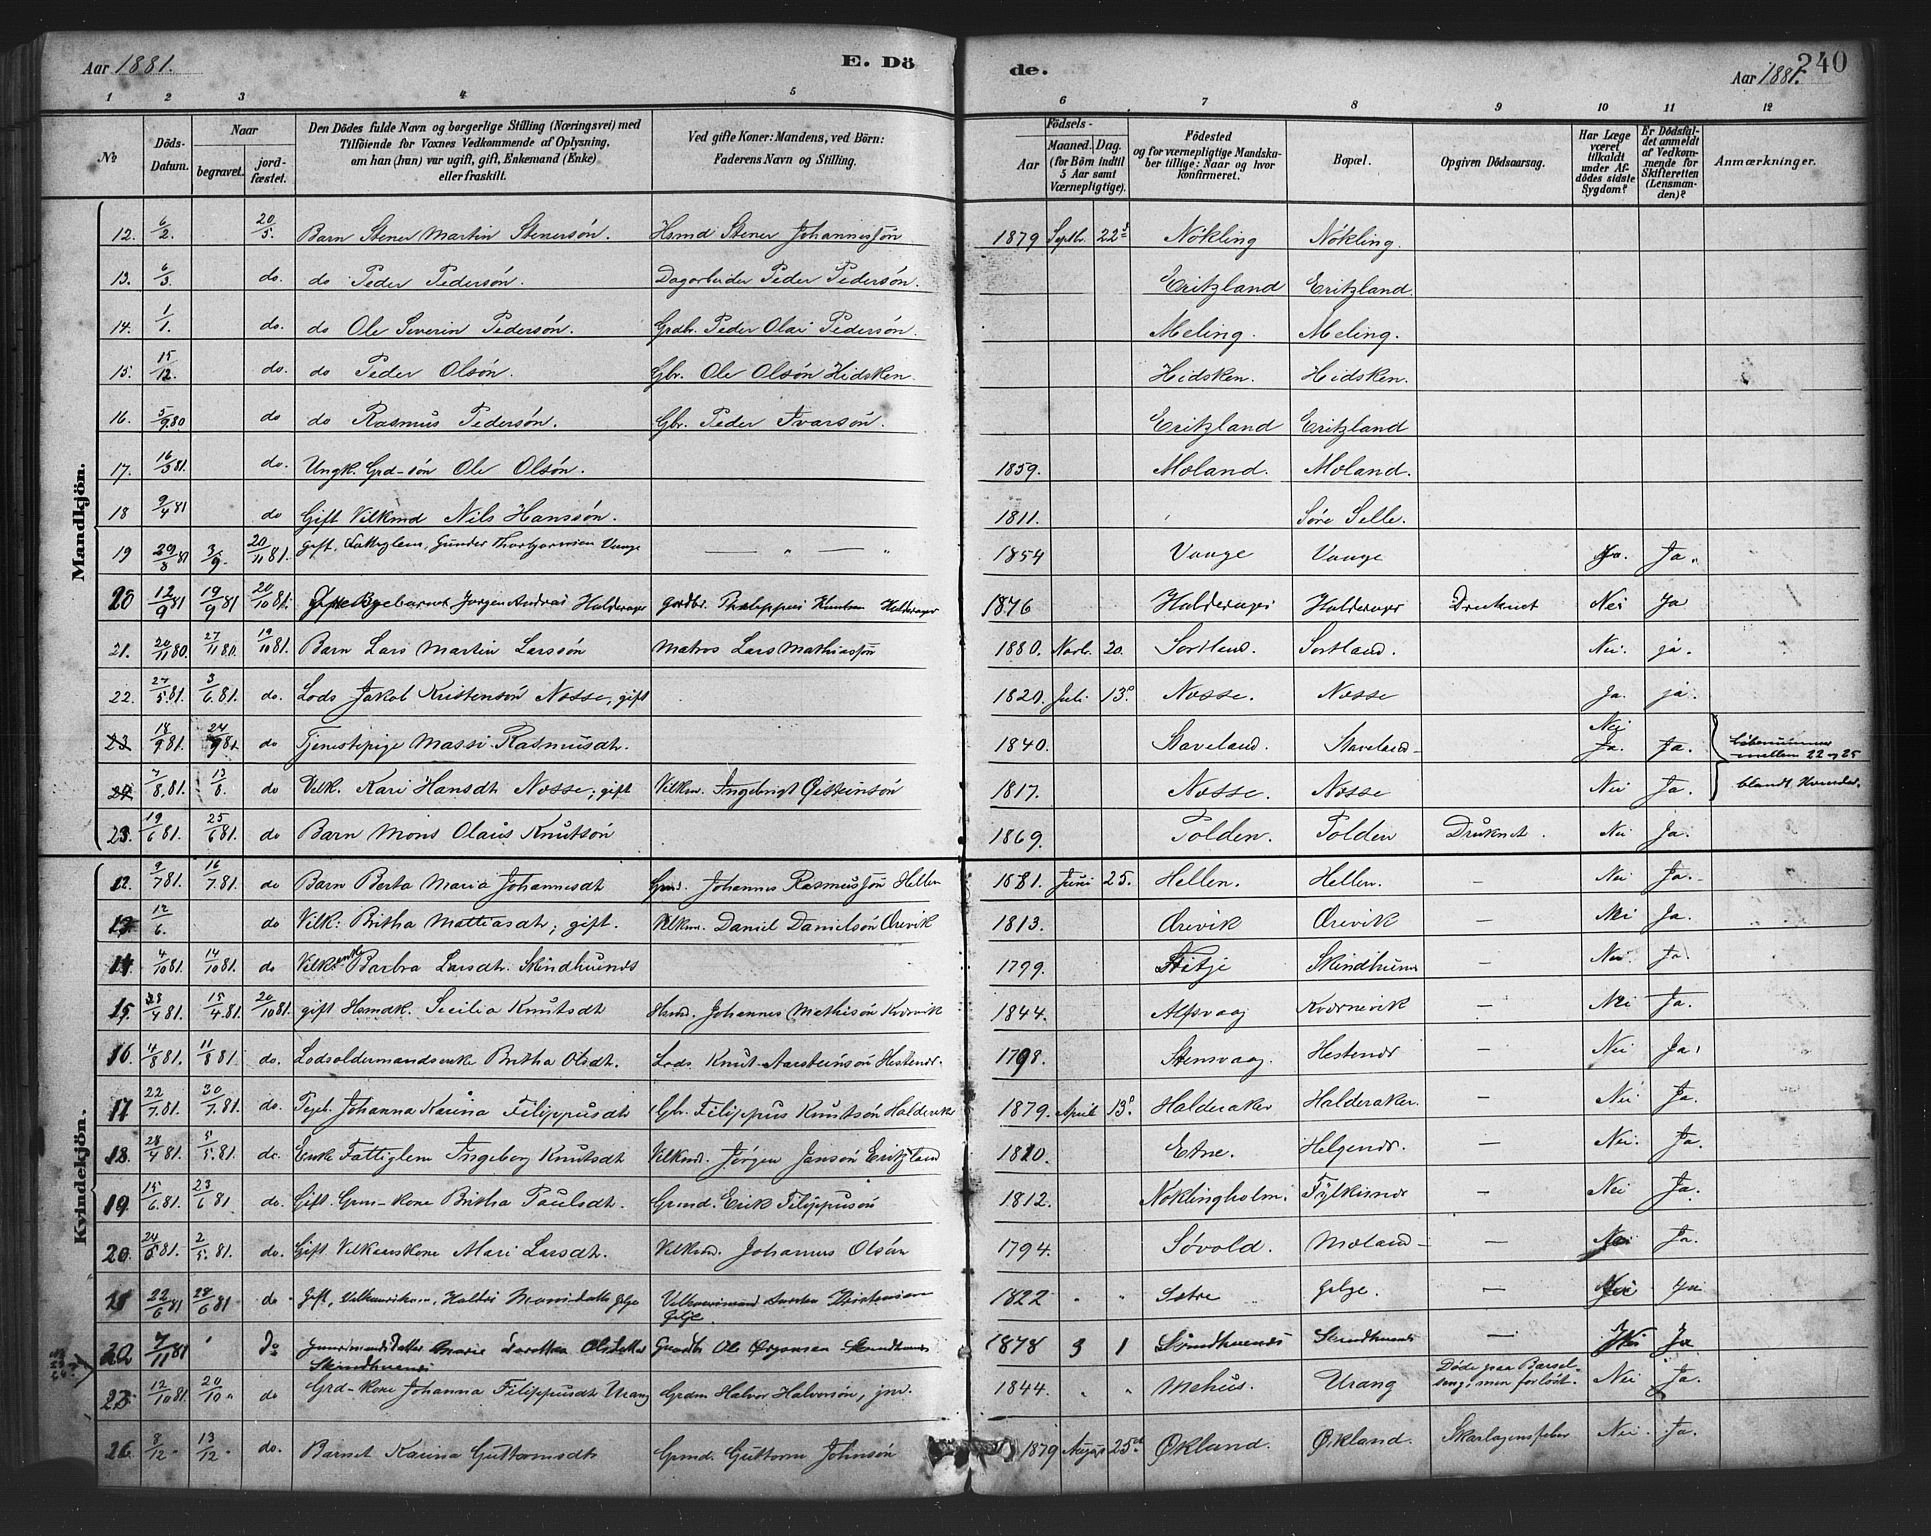 Aar 1881. E. Dö de. Aar 1881. 240
1 2 3 4 5 6 7 8 9 10 11 12
No Döds-Datum. Naar begravet. jordfæstet. Den Dödes fulde Navn og borgerlige Stilling (Næringsvei) med Tilföiende for Voxnes Vedkommende af Oplysning, om han (hun) var ugift, gift, Enkemand (Enke) eller fraskilt. Ved gifte Koner: Mandens, ved Börn: Faderens Navn og Stilling. Födsels- Aar Maaned. Dag. (for Börn indtil 5 Aar samt Værnepligtige). Födested og for værnepligtige Mandskaber tillige: Naar og hvor konfirmeret. Bopæl. Opgiven Dödsaarsag. Har Læge været tilkaldt under Afdödes sidste Sygdom? Er Dödsfaldet anmeldt af Vedkommende for Skifteretten (Lensmanden)? Anmærkninger.
Mandkjön.
12. 6/2. 20/5. Barn Stener Martin Stenersön. Hsmd Stener Johannessön 1879 Septbr. 22 Nökling Nökling.
13. 6/3. do. do Peder Pedersön. Dagarbeider Peder Pedersön. Eritzland Eritzland.
14. 1/1. do. do Ole Severin Pedersön. Grdbr. Peder Olai Pedersön. Meling. Meling.
15. 15/12. do. do Peder Olsön. Gbr. Ole Olsön Hidsken. Hidsken. Hidsken.
16. 5/9 80 do do Rasmus Pedersön. Gbr. Peder Ivarsön. Eritzland Eritzland
17. 16/5 81. do. Ungk. Grd-sön Ole Olsön. 1859. Moland. Moland.
18 9/4 81 do Gift Vilkmd Nils Hanssön. 1811. Söre Selle.
19 29/8 81 3/9. 20/11 81. gift, Fattiglem, Gunder Vange 1854 Vange Vange Ja. Ja.
20 12/9 81 19/9 81 20/10 81. Jörgen Andreas Haldorager gardbr. Philippus Knutsen Haldorager 1876 Haldorager Haldorager Druknet Nei Ja
21. 20/11 80. 27/11 80. 19/10 81. Barn Lars Martin Larssön Matros Lars Mathiassön 1880. Novb. 20. Sortland. Sortland. Nei. ja.
22. 27/5 81. 3/6 81. do. Lods Jakob Kristensön Nosse, gift 1820. Juli 13. Nosse. Nosse Ja. ja.
23 18/9 81. 24/9 81. do Tjenestepige Massi Rasmusdt. 1840. Staveland. Staveland Nei Ja. Ja. Löbenummer mellem 22 og 25
24 7/8. 81. 13/8. do Vilk. Kari Hansdt Nosse; gift Vilkm. Ingebrigt Öisteinsön 1817. Nosse. Nosse Nei Ja. blandt Kvinder.
23. 19/6 81. 25/6 81. do Barn Mons Olaus Knutsön 1869. Folden. Folden Druknet. Nei Ja.
Kvindekjön.
12. 9/7 81. 16/7. 81. do Barn Berta Maria Johannesdt Grmd. Johannes Rasmussön Hellen 1881. Juni 25. Hellen. Hellen. — Nei Ja.
13. 12/6. do Vilk: Britha Mattiasdt; gift. Vilkm. Daniel Danielsön Ørevik 1813. Ørevik Ørevik — Nei Ja.
14 4/10 81. 14/10 81. do Vilk. enke Barbra Larsdt. Skindhuends 1799. Fitje Skindhuends — Nei. Ja.
15. 23/4 81. 15/4. 81. 20/10 81. gift Hsmdk. Secilia Knutsdt Hsmd. Johannes Mathisön Kvörvik 1844. Alfsvaag Kvörnevik — Nei Ja.
16. 4/8 81. 11/8 81. do. Lodsoldermandsenke Britha Olsdt. Lods Knut Aarsteinsön Hestenes. 1798. Stensvaag. Hestenes — Nei Ja.
17 22/7. 81. 30/7. 81. do. Johanna Karina Filippusdt Gbr. Filippus Knutsön Haldoraker 1879. April 13. Haldoraker Haldoraker. — Nei Ja.
18. 28/4 81. 5/5. 81. do. Enke Fattiglem Ingeborg Knutsdt Vilkmd. Jörgen Jansön Eritzland 1810. Etne. Helgends. — Nei. Ja.
19. 15/6. 81. 23/6 81. do. Gift. Grm-kone Britha Paulsdt. Grmd. Erik Filippusön 1812. Noklingholm. Fylkesnes — Nei Ja.
20. 24/6 81. 2/5. 81. do. Gift Vilkaarskone Mari Larsdt. Vilkmd. Johannes Olsön 1794. Sövold. Moland — Nei Ja.
21 22/6 81 28/6 81 do Gift, Gilje Gilje. 1822 " " Sætre Gilje. — Nei Ja
22 7/11 81 " Do Marie Dorothea Olsdatter Skindhuends Gaardbr Ole Ørjansen Skindhuends 1878 3 1 Skindhuends Skindhuends — Nei Ja
25. 12/10 81. 20/10 " do Grd-kone Johanna Filippusdt Urang Grdm Halvor Halvorsön, jnr. 1844. " " Mehus. Urang Döde paa Barselseng, men forlöst. Nei Ja.
26. 8/12 " 13/12 " do. Barnet Karina Guttormsdt Grmd. Guttorm Johnsön 1879 August 25 Økland. Økland. Skarlagensfeber Nei. Ja.